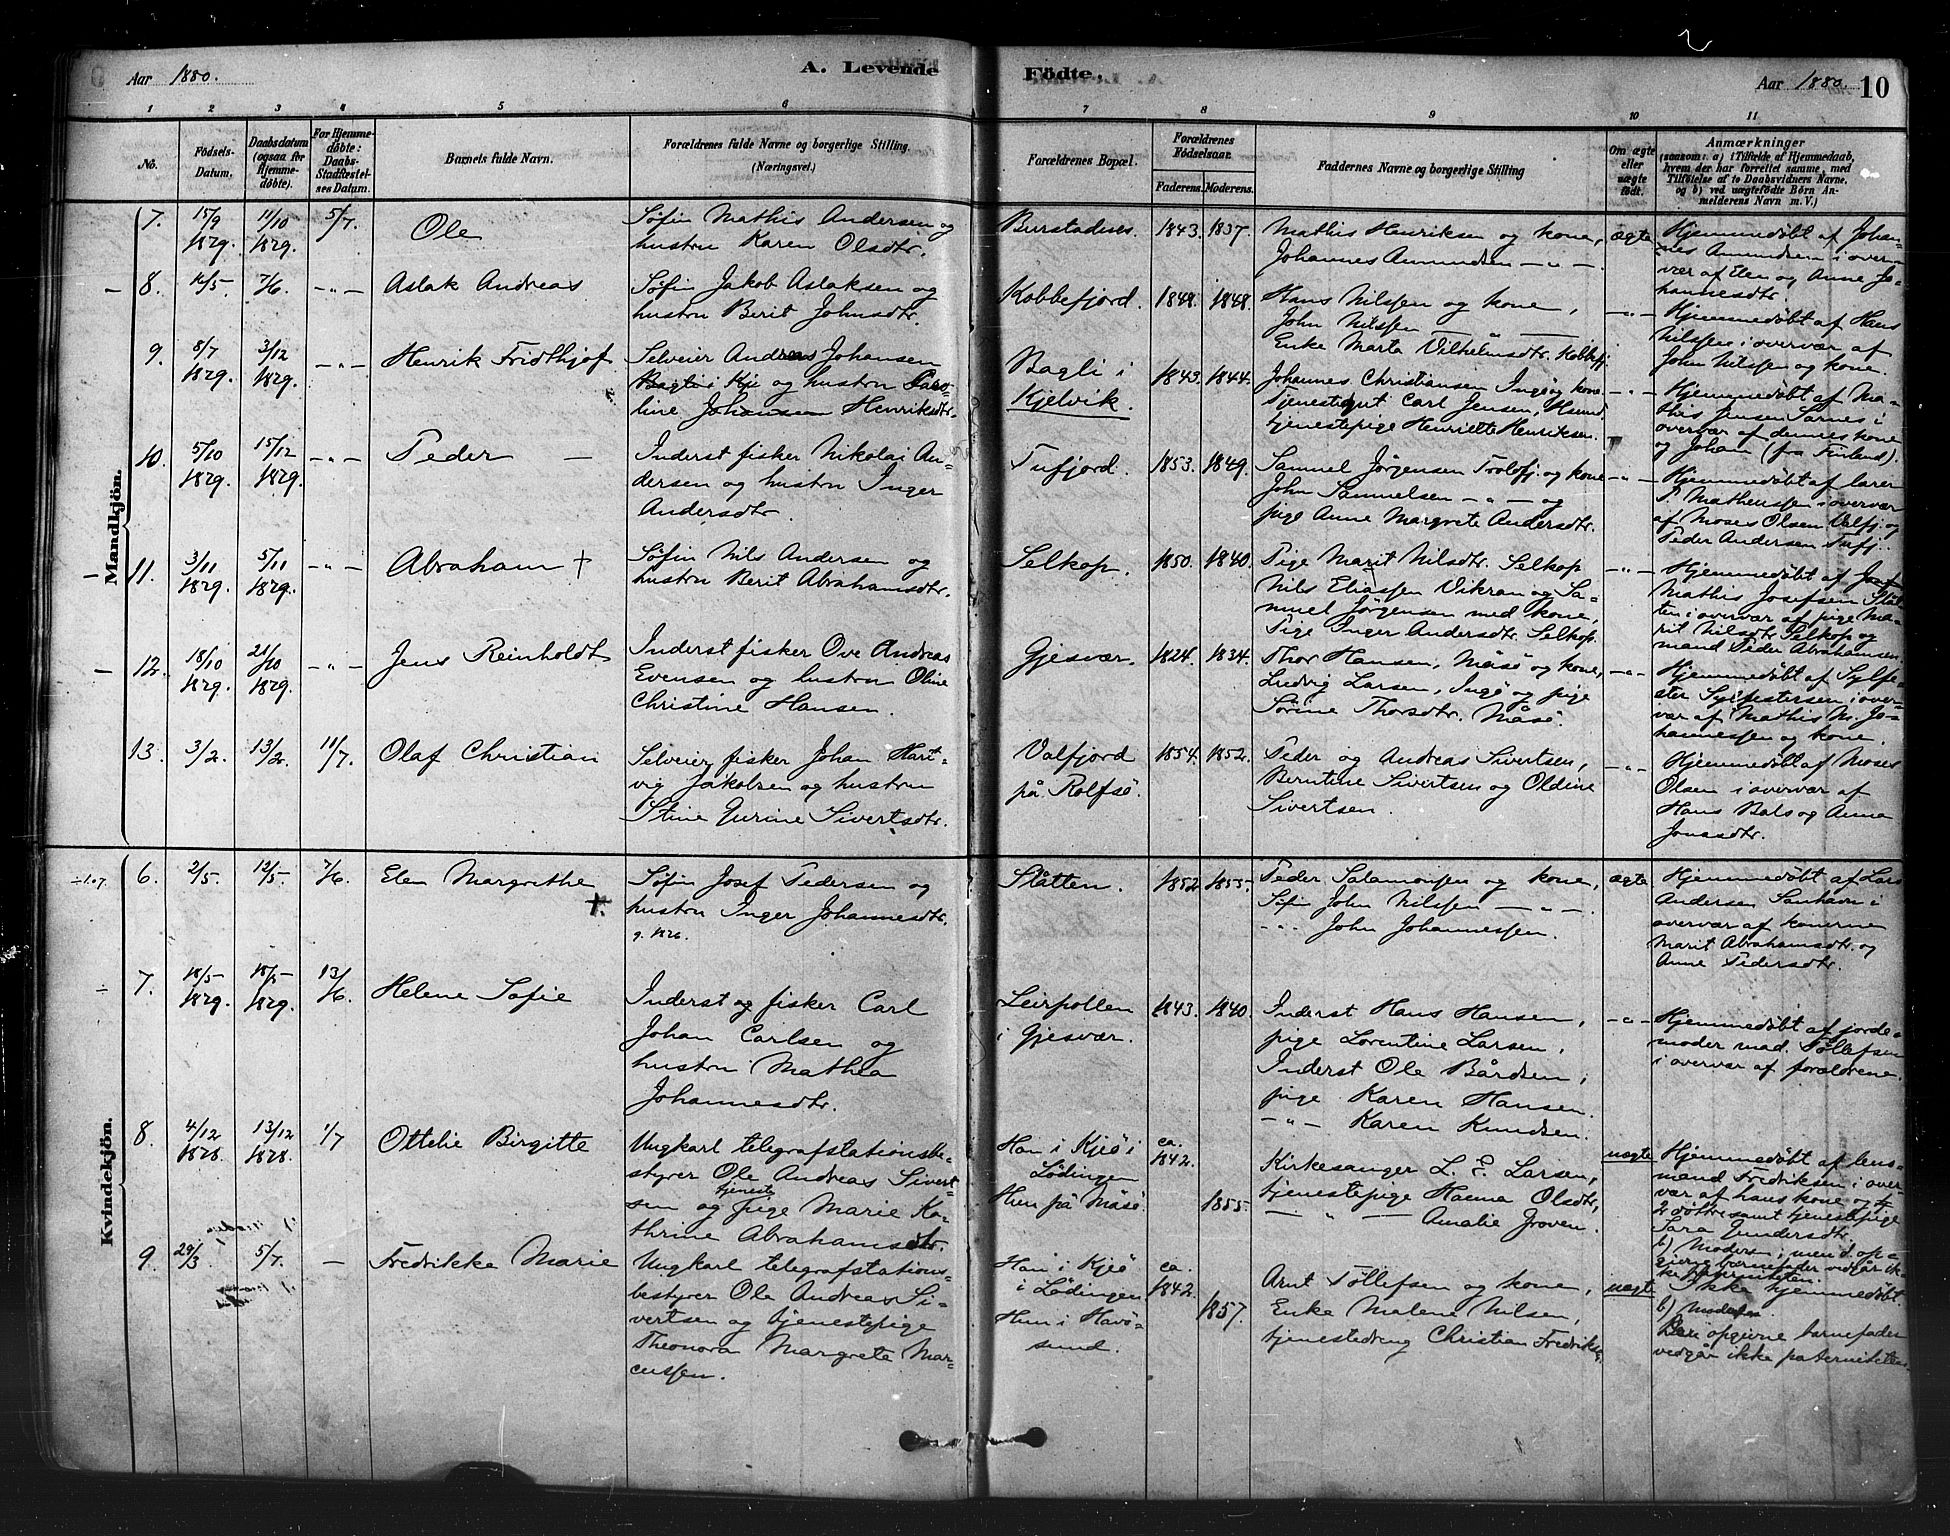 Aar 1880.
A. Levende
Födte.
Aar 1880. 10
1 2 3 4 5 6 7 8 9 10 11
No.
Födsels-Datum.
Daabsdatum (ogsaa for Hjemmedöbte).
For Hjemmedöbte: Daabs-Stadfæstelses Datum.
Barnets fulde Navn.
Forældrenes fulde Navne og borgerlige Stilling (Næringsvei.)
Forældrenes Bopæl.
Forældrenes Födselsaar.
Faderens. Moderens.
Faddernes Navne og borgerlige Stilling
Om ægte eller uægte födt.
Anmærkninger
(saasom: a) i Tilfælde af Hjemmedaab, hvem der har forrettet samme, med Tilföielse af to Daabsvidners Navne, og b) ved uægtefödte Börn Anmelderens Navn m. V.)
Mandkjön.
7. 15/9 1879. 11/10 1879. 5/7. Ole
Søfin Mathis Andersen og
hustru Karen Olsdtr.
1843. 1837.
Mathis Henriksen og kone,
Johannes Amundsen - " -
ægte
Hjemmedøbt af Johan-
nes Amundsen i over-
vær af Elen og Anne Jo-
hannesdtr.
8. 7/6. - " - Aslak Andreas
Søfin Jakob Aslaksen og
hustru Berit Johnsdtr.
Kobbefjord. 1848. 1848.
Hans Nilssen og kone,
John Nilssen
Enke Marta Vilhelmsdtr. Kobbefj.
- " -
Hjemmedøbt af Hans
Nilssen i overvær af
John Nilssen og kone.
9. 8/7 1879. 3/12 1879. - " - Henrik Fridthjof
Selveier Andreas Johansen
Bagli i Kje og hustru Caro-
line Johansen Henriksdtr.
Bagli i
Kjelvik.
1843. 1844.
Johannes Christiansen Ingøy kone
Tjenestegut Carl Jensen,
tjenestepige Henriette Henriksen.
- " -
Hjemmedøbt af Ma-
this Jensen Sarnes i
overvær af dennes kone
og Johan (fra Finland).
10. 5/10 1879. 15/12 1879. - " - Peder
Inderst fisker Nikolai An-
dersen og hustru Inger
Andersdtr.
Tufjord. 1853. 1849.
Samuel Jørgensen Trolofj. og kone
John Samuelsen - " - og
pige Anne Margrete Andersdtr.
- " -
Hjemmedøbt af lærer
P. Matheussen i overvær
af Moses Olsen Valfj. og
Peder Andersen Tufj.
11. 3/11 1879. 5/11 1879. - " - Abraham †
Søfin Nils Andersen og
hustru Berit Abrahamsdtr.
Selkop. 1850. 1840.
Pige Marit Nilsdtr. Selkop
Nils Eliassen Vikran og Sa-
muel Jørgensen med kone,
Pige Inger Andersdtr. Selkop.
- " -
Hjemmedøbt af Josef
Mathis Josefsen Slåt-
ten i overvær af pige Ma-
rit Nilsdtr. Selkop og
mand Peder Abrahamsen.
12. 18/10 1879. 21/10 1879. - " - Jens Reinholdt
Inderst fisker Ove Andreas
Evensen og hustru Oline
Christine Hansen.
Gjesvær. 1824. 1834.
Thor Hansen, Måsø og kone,
Ludvig Larsen, Ingø og pige
Sørine Thorsdtr. Måsø.
- " -
Hjemmedøbt af Sylfe-
ster Sylfestersen i over-
vær af Mathis M. Jo-
hannessen og kone.
13. 3/2. 13/2. 11/7. Olaf Christian
Selveier fisker Johan Hart-
vig Jakobsen og hustru
Stine Enrine Sivertsdtr.
Valfjord
på Rolfsø.
1854. 1852.
Peder og Andreas Sivertsen,
Berntine Sivertsen og Oldine
Sivertsen.
- " -
Hjemmedøbt af Moses
Olsen i overvær af
Hans Nals og Anna
Jonsdtr.
Kvindekjön.
6. 2/5. 12/5. 7/6. Elen Margrethe †.
Søfin Josef Pedersen og
hustru Inger Johannesdtr.
Slåtten. 1852 1855.
Peder Salamonsen og kone,
Søfin John Nilssen - " -
- " - John Johannessen.
ægte
Hjemmedøbt af Lars
Andersen Sanhavn i
overvær af konerne
Marit Abrahamsdtr. og
Anne Pedersdtr.
7. 18/5 1879. 18/5 1879. 13/6. Helene Sofie
Inderst og fisker Carl
Johan Carlsen og
hustru Mathea
Johannesdtr.
Leirpollen
i Gjesvær.
1843. 1840.
Inderst Hans Hansen,
pige Lorentine Larsen,
Inderst Ole Bårdsen,
pige Karen Hansen.
- " - Karen Knudsen.
- " -
Hjemmedøbt af jorde-
moder mad. Tøllefsen
i overvær af forældrene.
8. 4/12 1878. 13/12 1878. 1/7 Ottelie Birgitte
Ungkarl telegrafstationsbe-
styrer Ole Andreas Sivert-
sen og tjenestepige Marie Ka-
thrine Abrahamsdtr.
Han i Kjeø i
Lødingen
Hun på Måsø
ca. 1842. 1855.
Kirkesanger L. E. Larsen,
tjenestepige Hanna Olsdtr,
- " - Amalie Groven.
uægte
Hjemmedøbt af lens-
mand Fredriksen i over-
vær af hans kone og
2 døttre samt tjenestepige
Sara Gundersdtr.
b) Moderen; men d. op-
givne barnefader vedgår ik-
ke paterniteten.
9. 29/3. 5/7. - Fredrikke Marie
Ungkarl telegrafstations-
bestyrer Ole Andreas Si-
vertsen og tjenestepige
Theonora Margrete Mar-
cussen.
Han i Kjeø
i Lødingen.
Hun i Havø-
sund.
ca. 1842. 1857.
Arnt Tøllefsen og kone,
Enke Malene Nilsen,
tjenestedreng Christian Fredriksen
uægte
Ikke hjemmedøbt.
b) Moderen.
Den opgivne barnefader
vedgår ikke paterniteten.